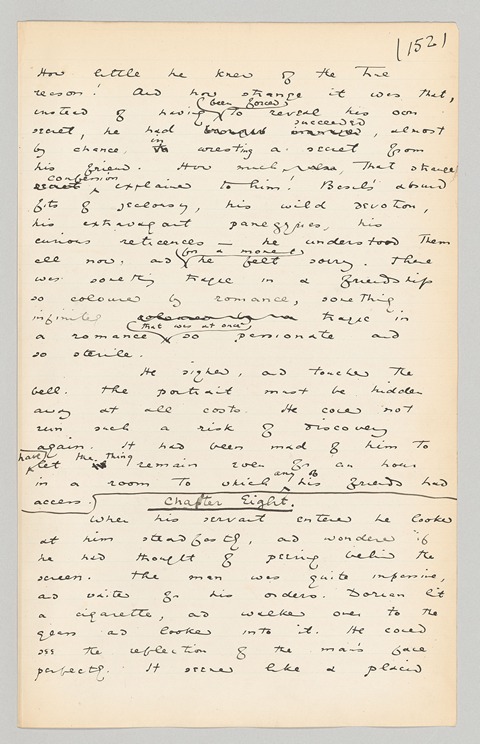 (152)
How little he knew of the true
reason! And how strange it was that,
instead of having been forced to reveal his own
secret, he had succeeded, almost
by chance, in wresting a secret from
his friend. How much, that strange
confession explained to him! Basil's absurd
fits of jealousy, his wild devotion,
his extravagant panegyrics, his
curious reticences — he understood them
all now, and for a moment he felt sorry. There
was something tragic in a friendship
so coloured by romance, something
infinitely tragic in
a romance that was at once so passionate and
so sterile.
He sighed, and touched the
bell. The portrait must be hidden
away at all costs. He could not
run such a risk of discovery
again. It had been mad of him to
have let the thing remain even for an hour
in a room to which any of his friends had
access.
Chapter Eight.
When his servant entered he looked
at him steadfastly, and wondered if
he had thought of peering behind the
screen. The man was quite impassive,
and waited for his orders. Dorian lit
a cigarette, and walked over to the
glass and looked into it. He could
see the reflection of the man's face
perfectly. It seemed like a placid